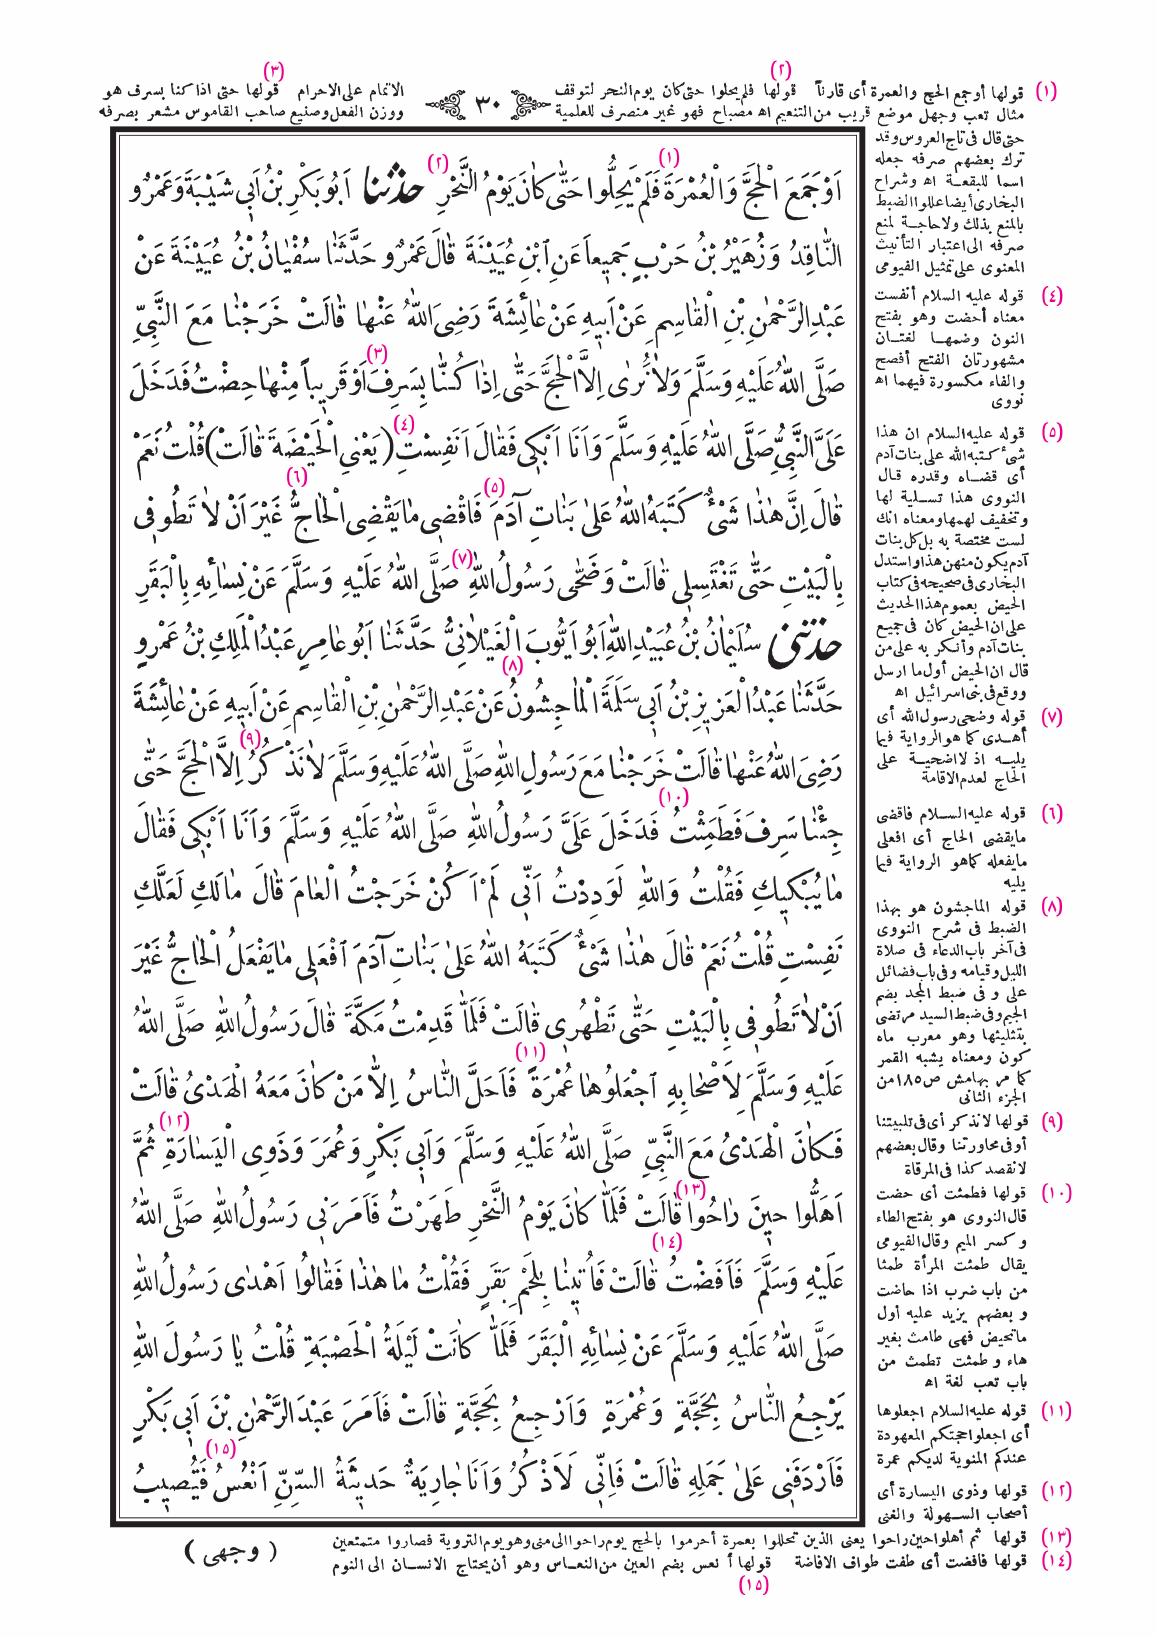 (٢) (٣)
(١) قولها أوجمع الحج والعمرة أى قارناً قولها فلم يحلوا حتى كان يوم النحر لتوقف ٣٠ الاتمام على الاحرام قولها حتى اذا كنا بسرف هو
مثال تعب وجهل موضع قريب من التنعيم اه مصباح فهو غير منصرف للعلمية ووزن الفعل وصنيع صاحب القاموس مشعر بصرفه
حتى قال فى تاج العروس وقد
ترك بعضهم صرفه جعله
اسما للبقعة اه وشراح
البخارى أيضا عللوا الضبط
بالمنع بذلك ولا حاجة لمنع
صرفه الى اعتبار التأنيث
المعنوى على تمثيل الفيومى
(٤) قوله عليه السلام أنفست
معناه أحضت وهو بفتح
النون وضمها لغتان
مشهورتان الفتح أفصح
والفاء مكسورة فيهما اه
نووى
(٥) قوله عليه السلام ان هذا
شىء كتبه الله على بنات آدم
أى قضاه وقدره قال
النووى هذا تسلية لها
وتخفيف لهمها ومعناه انك
لست مختصة به بل كل بنات
آدم يكون منهن هذا واستدل
البخارى فى صحيحه فى كتاب
الحيض بعموم هذا الحديث
على ان الحيض كان فى جميع
بنات آدم وأنكر به على من
قال ان الحيض أول ما ارسل
ووقع فى بنى اسرائيل اه
(٧) قوله وضحى رسول الله أى
أهدى كما هو الرواية فيما
يليه اذ لا اضحية على
الحاج لعدم الاقامة
(٦) قوله عليه السلام فاقضى
ما يقضى الحاج أى افعلى
ما يفعله كما هو الرواية فيما
يليه
(٨) قوله الماجشون هو بهذا
الضبط فى شرح النووى
فى آخر باب الدعاء فى صلاة
الليل وقيامه وفى باب فضائل
على و فى ضبط المجد بضم
الجيم وفى ضبط السيد مرتضى
بتثليثها وهو معرب ماه
كون ومعناه يشبه القمر
كما مر بهامش ص١٨٥ من
الجزء الثانى
(٩) قولها لا نذكر أى فى تلبيتنا
أو فى محاورتنا وقال بعضهم
لا نقصد كذا فى المرقاة
(١٠) قولها فطمثت أى حضت
قال النووى هو بفتح الطاء
وكسر الميم وقال الفيومى
يقال طمثت المرأة طمثا
من باب ضرب اذا حاضت
وبعضهم يزيد عليه أول
ما تحيض فهى طامث بغير
هاء وطمثت تطمث من
باب تعب لغة اه
(١١) قوله عليه السلام اجعلوها
أى اجعلوا حجتكم المعهودة
عندكم المنوية لديكم عمرة
(١٢) قولها وذوى اليسارة أى
أصحاب السهولة والغنى
(١)
اَوْجَمَعَ الْحَجَّ وَالْعُمْرَةَ فَلَمْ يَحِلُّوا حَتّٰى كَانَ يَوْمُ النَّحْرِ (٢) حدثنا اَبُو بَكْرِ بْنُ اَبِى شَيْبَةَ وَعَمْرٌو
النَّاقِدُ وَزُهَيْرُ بْنُ حَرْبٍ جَمِيعاً عَنِ ابْنِ عُيَيْنَةَ قَالَ عَمْرٌو حَدَّثَنَا سُفْيَانُ بْنُ عُيَيْنَةَ عَنْ
عَبْدِ الرَّحْمٰنِ بْنِ الْقَاسِمِ عَنْ اَبِيهِ عَنْ عَائِشَةَ رَضِىَ اللهُ عَنْهَا قَالَتْ خَرَجْنَا مَعَ النَّبِيِّ
(٣)
صَلَّى اللهُ عَلَيْهِ وَسَلَّمَ وَلَا نُرٰى اِلَّا الْحَجَّ حَتّٰى اِذَا كُنَّا بِسَرِفَ اَوْ قَرِيباً مِنْهَا حِضْتُ فَدَخَلَ
(٤)
عَلَىَّ النَّبِيُّ صَلَّى اللهُ عَلَيْهِ وَسَلَّمَ وَاَنَا اَبْكِى فَقَالَ اَنَفِسْتِ (يَعْنِى الْحَيْضَةَ قَالَتْ) قُلْتُ نَعَمْ
(٥) (٦)
قَالَ اِنَّ هٰذَا شَىْءٌ كَتَبَهُ اللهُ عَلٰى بَنَاتِ آدَمَ فَاقْضِى مَا يَقْضِى الْحَاجُّ غَيْرَ اَنْ لَا تَطُوفِى
(٧)
بِالْبَيْتِ حَتّٰى تَغْتَسِلِى قَالَتْ وَضَحّٰى رَسُولُ اللهِ صَلَّى اللهُ عَلَيْهِ وَسَلَّمَ عَنْ نِسَائِهِ بِالْبَقَرِ
حدثنى سُلَيْمَانُ بْنُ عُبَيْدِ اللهِ اَبُو اَيُّوبَ الْغَيْلَانِىُّ حَدَّثَنَا اَبُو عَامِرٍ عَبْدُ الْمَلِكِ بْنُ عَمْرٍو
(٨)
حَدَّثَنَا عَبْدُ الْعَزِيزِ بْنُ اَبِى سَلَمَةَ الْمَاجِشُونُ عَنْ عَبْدِ الرَّحْمٰنِ بْنِ الْقَاسِمِ عَنْ اَبِيهِ عَنْ عَائِشَةَ
(٩)
رَضِىَ اللهُ عَنْهَا قَالَتْ خَرَجْنَا مَعَ رَسُولِ اللهِ صَلَّى اللهُ عَلَيْهِ وَسَلَّمَ لَا نَذْكُرُ اِلَّا الْحَجَّ حَتّٰى
(١٠)
جِئْنَا سَرِفَ فَطَمِثْتُ فَدَخَلَ عَلَىَّ رَسُولُ اللهِ صَلَّى اللهُ عَلَيْهِ وَسَلَّمَ وَاَنَا اَبْكِى فَقَالَ
مَا يُبْكِيكِ فَقُلْتُ وَاللهِ لَوَدِدْتُ اَنِّى لَمْ اَكُنْ خَرَجْتُ الْعَامَ قَالَ مَالَكِ لَعَلَّكِ
نَفِسْتِ قُلْتُ نَعَمْ قَالَ هٰذَا شَىْءٌ كَتَبَهُ اللهُ عَلٰى بَنَاتِ آدَمَ افْعَلِى مَا يَفْعَلُ الْحَاجُّ غَيْرَ
اَنْ لَا تَطُوفِى بِالْبَيْتِ حَتّٰى تَطْهُرِى قَالَتْ فَلَمَّا قَدِمْتُ مَكَّةَ قَالَ رَسُولُ اللهِ صَلَّى اللهُ
(١١)
عَلَيْهِ وَسَلَّمَ لِاَصْحَابِهِ اجْعَلُوهَا عُمْرَةً فَاَحَلَّ النَّاسُ اِلَّا مَنْ كَانَ مَعَهُ الْهَدْىُ قَالَتْ
(١٢)
فَكَانَ الْهَدْىُ مَعَ النَّبِيِّ صَلَّى اللهُ عَلَيْهِ وَسَلَّمَ وَاَبِى بَكْرٍ وَعُمَرَ وَذَوِى الْيَسَارَةِ ثُمَّ
(١٣)
اَهَلُّوا حِينَ رَاحُوا قَالَتْ فَلَمَّا كَانَ يَوْمُ النَّحْرِ طَهَرْتُ فَاَمَرَنِى رَسُولُ اللهِ صَلَّى اللهُ
(١٤)
عَلَيْهِ وَسَلَّمَ فَاَفَضْتُ قَالَتْ فَاُتِينَا بِلَحْمِ بَقَرٍ فَقُلْتُ مَا هٰذَا فَقَالُوا اَهْدٰى رَسُولُ اللهِ
صَلَّى اللهُ عَلَيْهِ وَسَلَّمَ عَنْ نِسَائِهِ الْبَقَرَ فَلَمَّا كَانَتْ لَيْلَةُ الْحَصْبَةِ قُلْتُ يَا رَسُولَ اللهِ
يَرْجِعُ النَّاسُ بِحَجَّةٍ وَعُمْرَةٍ وَاَرْجِعُ بِحَجَّةٍ قَالَتْ فَاَمَرَ عَبْدَ الرَّحْمٰنِ بْنَ اَبِى بَكْرٍ
(١٥)
فَاَرْدَفَنِى عَلٰى جَمَلِهِ قَالَتْ فَاِنِّى لَاَذْكُرُ وَاَنَا جَارِيَةٌ حَدِيثَةُ السِّنِّ اَنْعُسُ فَتُصِيبُ
(١٣) قولها ثم أهلوا حين راحوا يعنى الذين تحللوا بعمرة أحرموا بالحج يوم راحوا الى منى وهو يوم التروية فصاروا متمتعين
(١٤) قولها فافضت أى طفت طواف الافاضة قولها أنعس بضم العين من النعاس وهو أن يحتاج الانسان الى النوم
(١٥)
( وجهى )